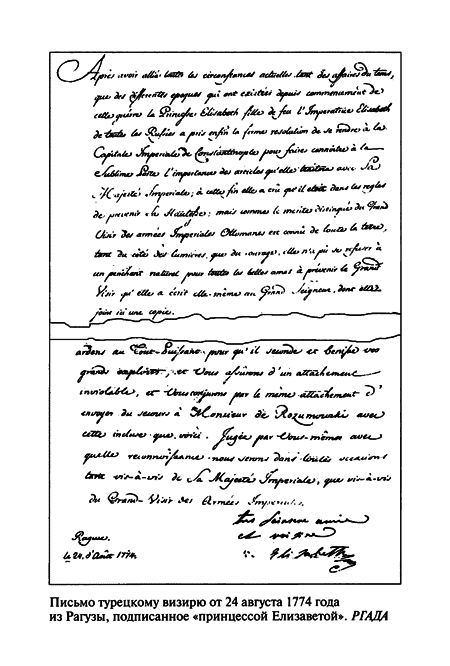 Après avoir allié toutes les circonstances actuelles tant des affaires du tems,
que des différentes époques qui ont existées depuis commencement de
celle guerre la Princesse Elisabeth fille de feu l'Imperatrice Elisabeth
de toutes les Russies a pris enfin la ferme resolution de se rendre à la
Capitale Imperiale de Constantinople pour faire connoitre à la
Sublime Porte l'importance des articles qu'elle traitera avec Sa
Majesté Imperiale; à cette fin elle a crû qu'il etoit dans les regles
de prevenir Sa Hautesse; mais comme le merite distingué du Grand
Visir des armées Imperiales Ottomanes est connu de toute la terre,
tant du côté des lumieres, que du courage, elle n'a pû se refuser à
un penchant naturel pour toutes les belles ames à prévenir le Grand
Visir qu'elle a écrit elle-même au Grand Seigneur, dont elle
joint ici une copie.
ardens au Tout-Puissant pour qu'il seconde et benisse vos
grands exploits, et Vous assurons d'un attachement
inviolable, et Vous conjurons par le même attachement d'
envoyer du secours à Monsieur de Rozumowski avec
cette incluse que voici. Jugez par Vous-mêmes avec
quelle reconnoissance nous serons dans toutes occasions
tant vis-à-vis de Sa Majesté Imperiale, que vis-à-vis
du Grand-Visir des Armées Imperiales.
amie
et voisine
Raguse.
le 24. d'Août 1774.
Elisabeth
Письмо турецкому визирю от 24 августа 1774 года
из Рагузы, подписанное «принцессой Елизаветой». РГАДА